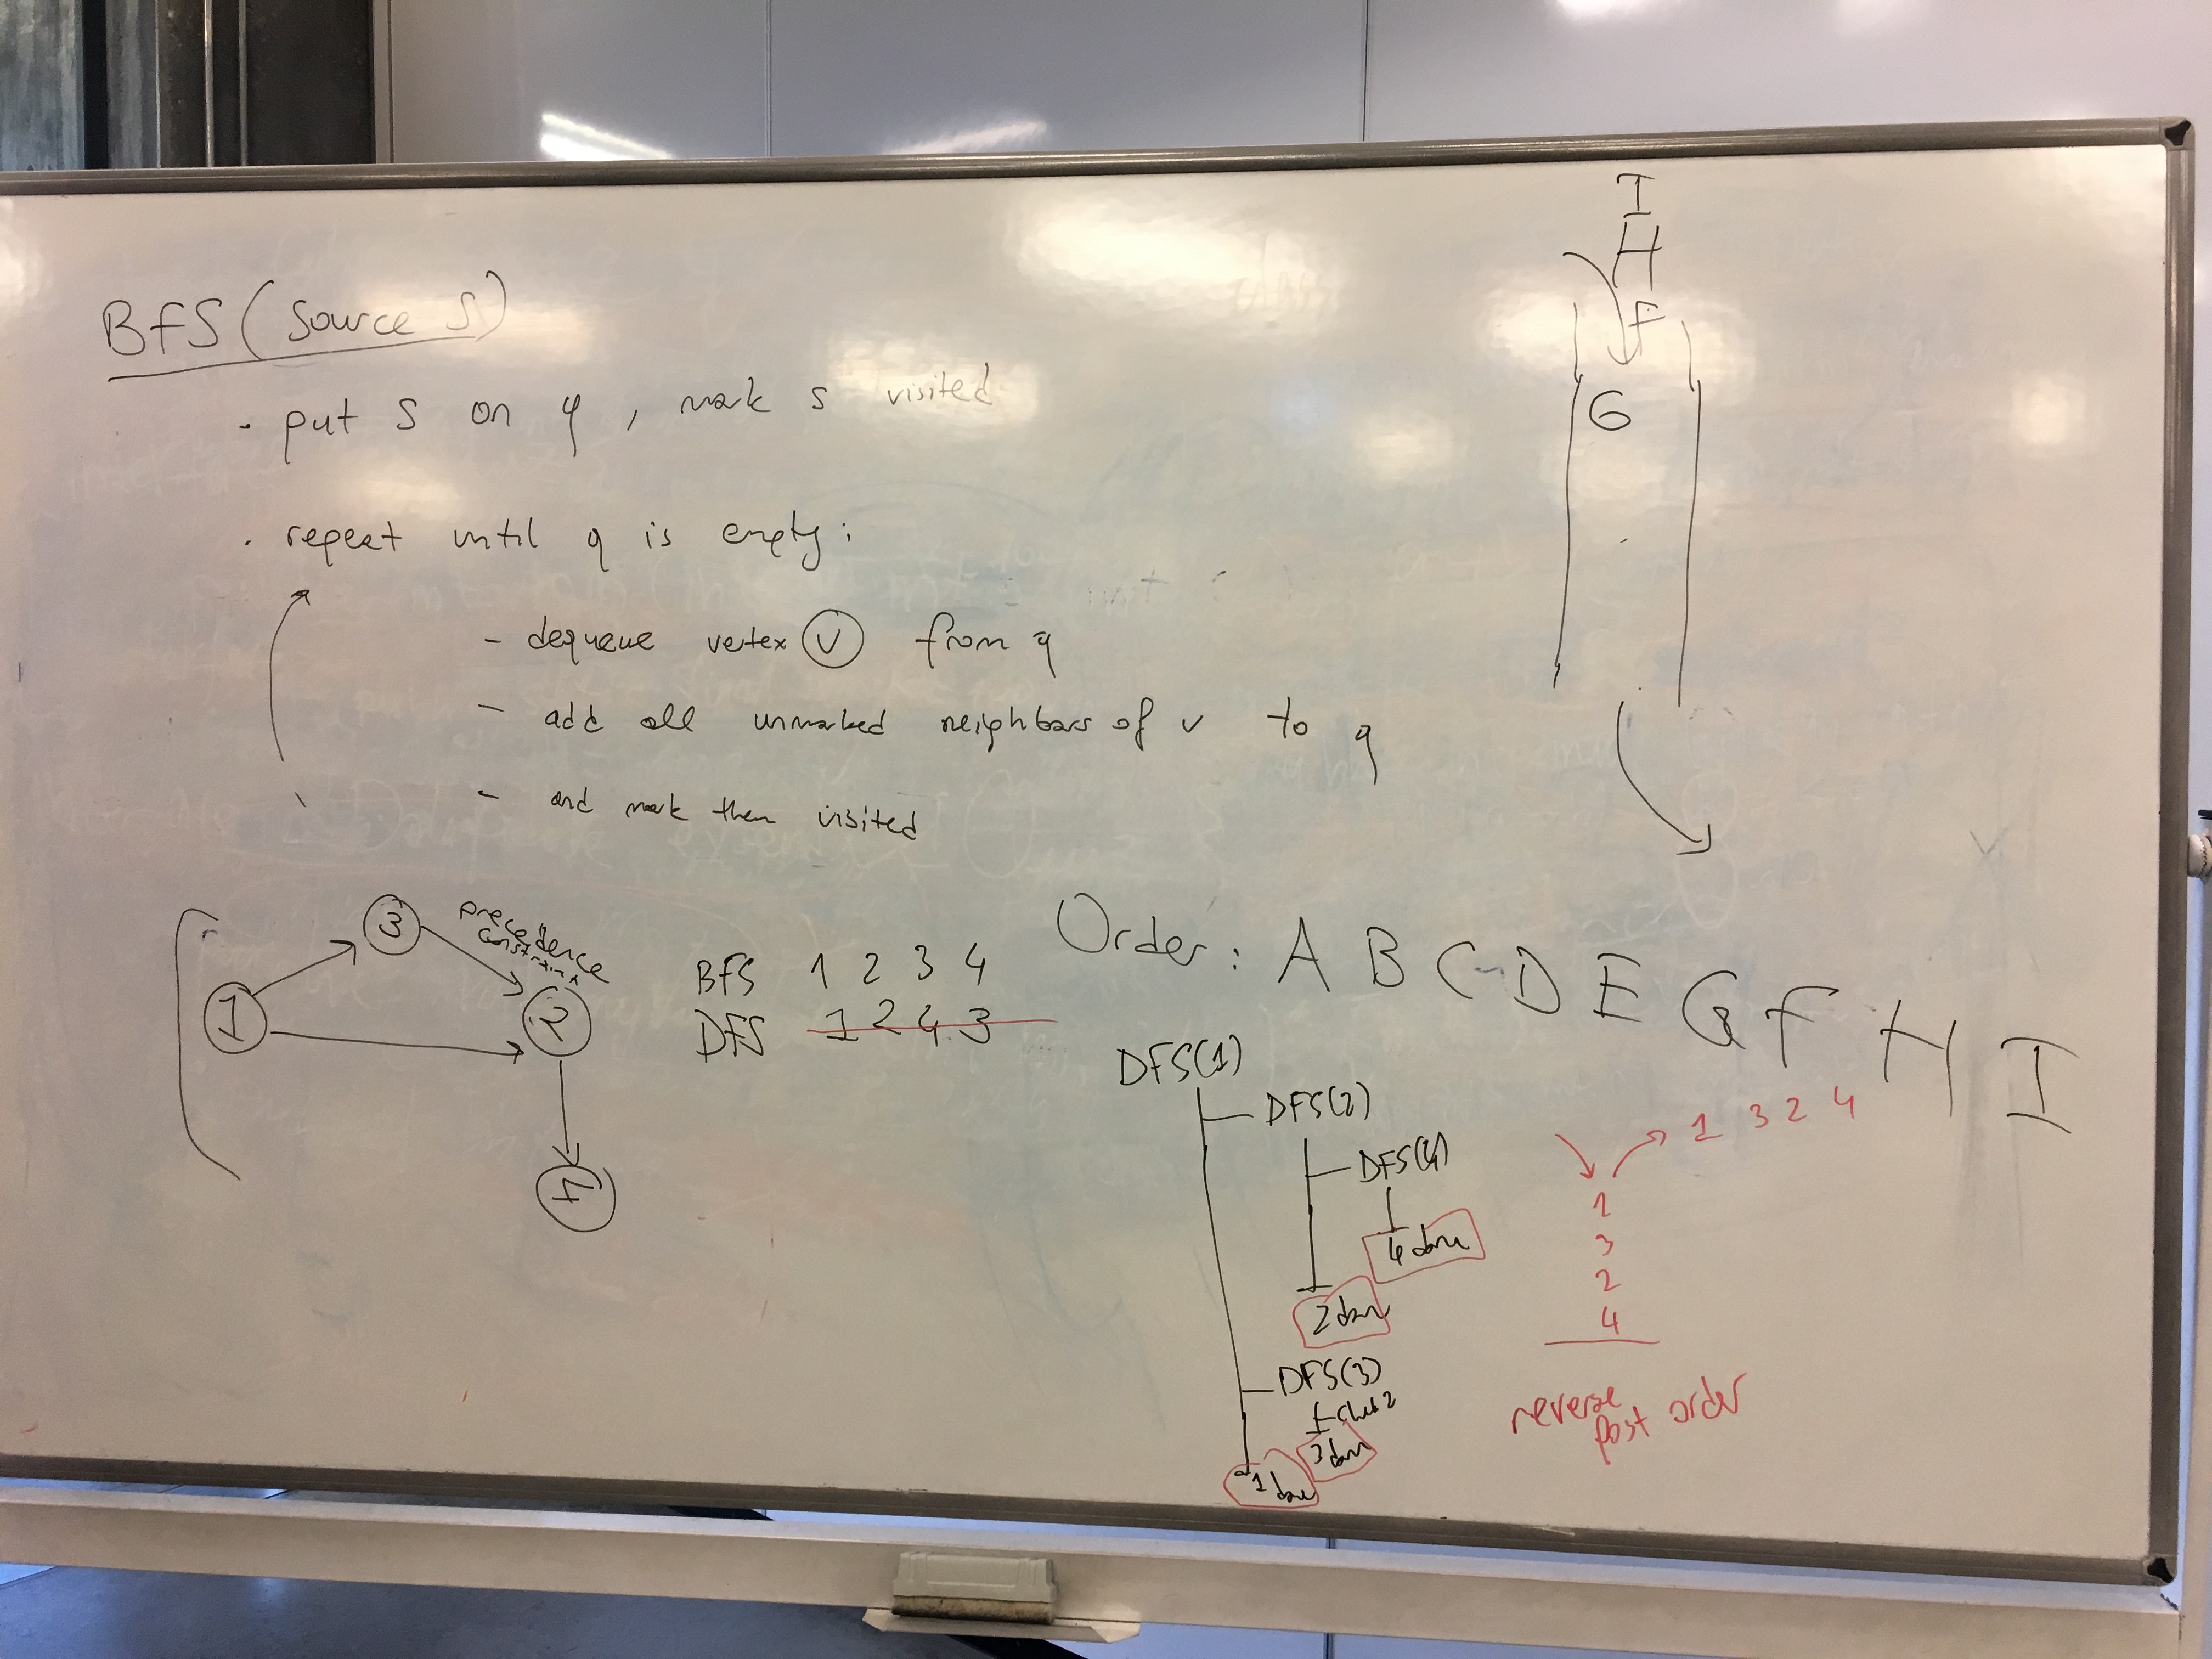 BFS (Source S)
· put S on q, mark s visited
· repeat until q is empty:
- dequeue vertex V from q
- add all unmarked neighbors of v to q
- and mark them visited
I
H
F
G
1
3
precedence
constraint
2
4
BFS 1 2 3 4
DFS 1 2 4 3
Order: A B C D E G F H I
DFS(1)
DFS(2)
DFS(4)
4 done
2 done
DFS(3)
3 done
1 done
1 3 2 4
1
3
2
4
reverse
post order